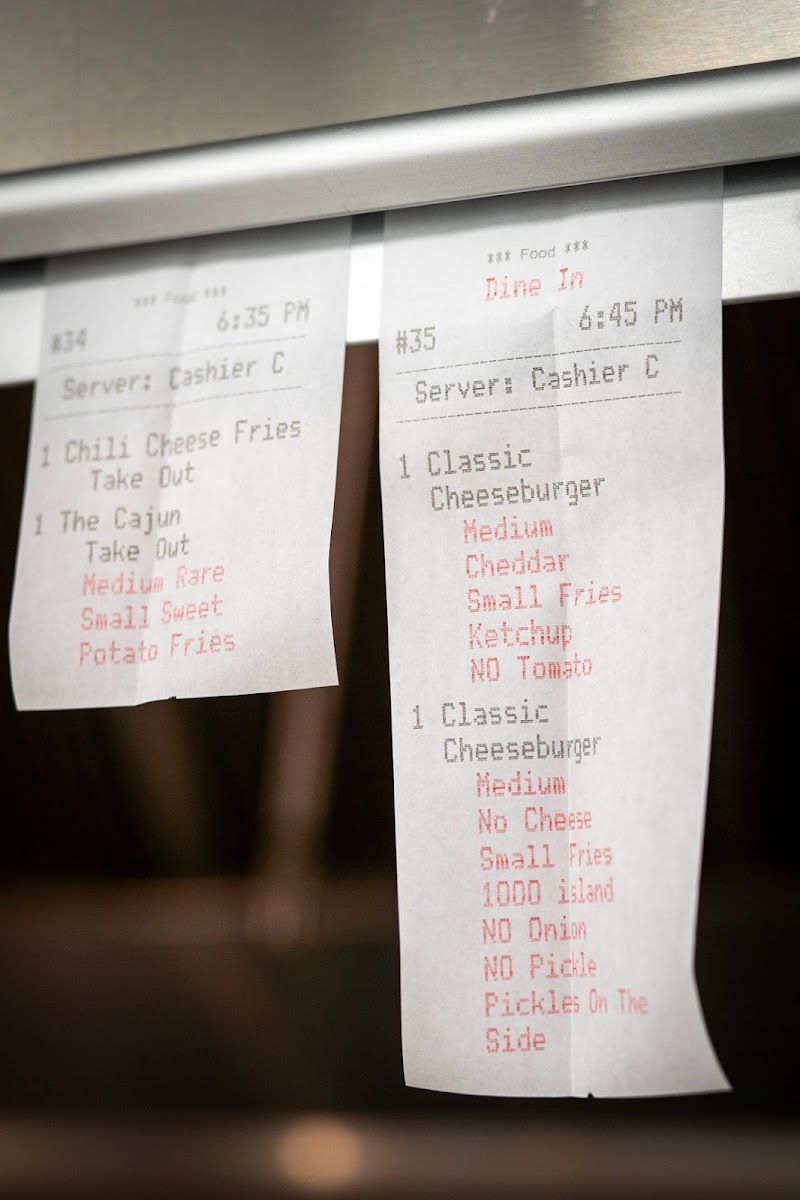 *** Food ***
6:35 PM
#34
Server: Cashier C
1 Chili Cheese Fries
Take Out
1 The Cajun
Take Out
Medium Rare
Small Sweet
Potato Fries
*** Food ***
Dine In
6:45 PM
#35
Server: Cashier C
1 Classic
Cheeseburger
Medium
Cheddar
Small Fries
Ketchup
NO Tomato
1 Classic
Cheeseburger
Medium
No Cheese
Small Fries
1000 island
NO Onion
NO Pickle
Pickles On The
Side